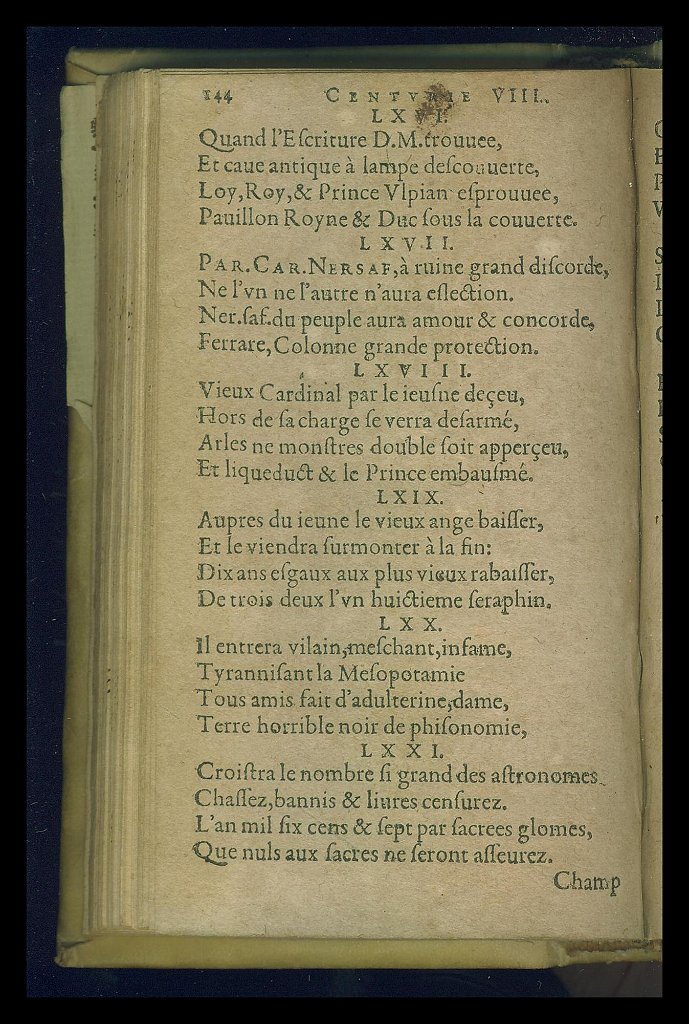 144 CENTVRIE VIII.
LXVI.
Quand l'Eſcriture D.M. trouuee,
Et caue antique à lampe deſcouuerte,
Loy, Roy, & Prince Vlpian eſprouuee,
Pauillon Royne & Duc ſous la couuerte.
LXVII.
PAR. CAR. NERSAF, à ruine grand diſcorde,
Ne l'vn ne l'autre n'aura eſlection.
Ner. ſaf. du peuple aura amour & concorde,
Ferrare, Colonne grande protection.
LXVIII.
Vieux Cardinal par le ieuſne deçeu,
Hors de ſa charge ſe verra deſarmé,
Arles ne monſtres double ſoit apperçeu,
Et liqueduct & le Prince embauſmé.
LXIX.
Aupres du ieune le vieux ange baiſſer,
Et le viendra ſurmonter à la fin:
Dix ans eſgaux aux plus vieux rabaiſſer,
De trois deux l'vn huictieme ſeraphin.
LXX.
Il entrera vilain, meſchant, infame,
Tyranniſant la Meſopotamie
Tous amis fait d'adulterine, dame,
Terre horrible noir de phiſonomie,
LXXI.
Croiſtra le nombre ſi grand des aſtronomes
Chaſſez, bannis & liures cenſurez.
L'an mil ſix cens & ſept par ſacrees glomes,
Que nuls aux ſacres ne ſeront aſſeurez.
Champ